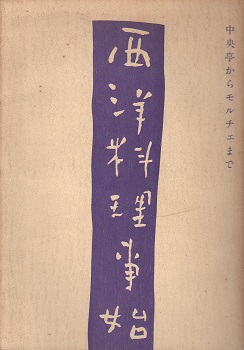 中央亭からモルチェまで
西洋料理事始